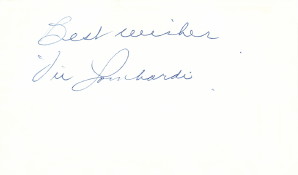 Best wishes
"Vic Lombardi